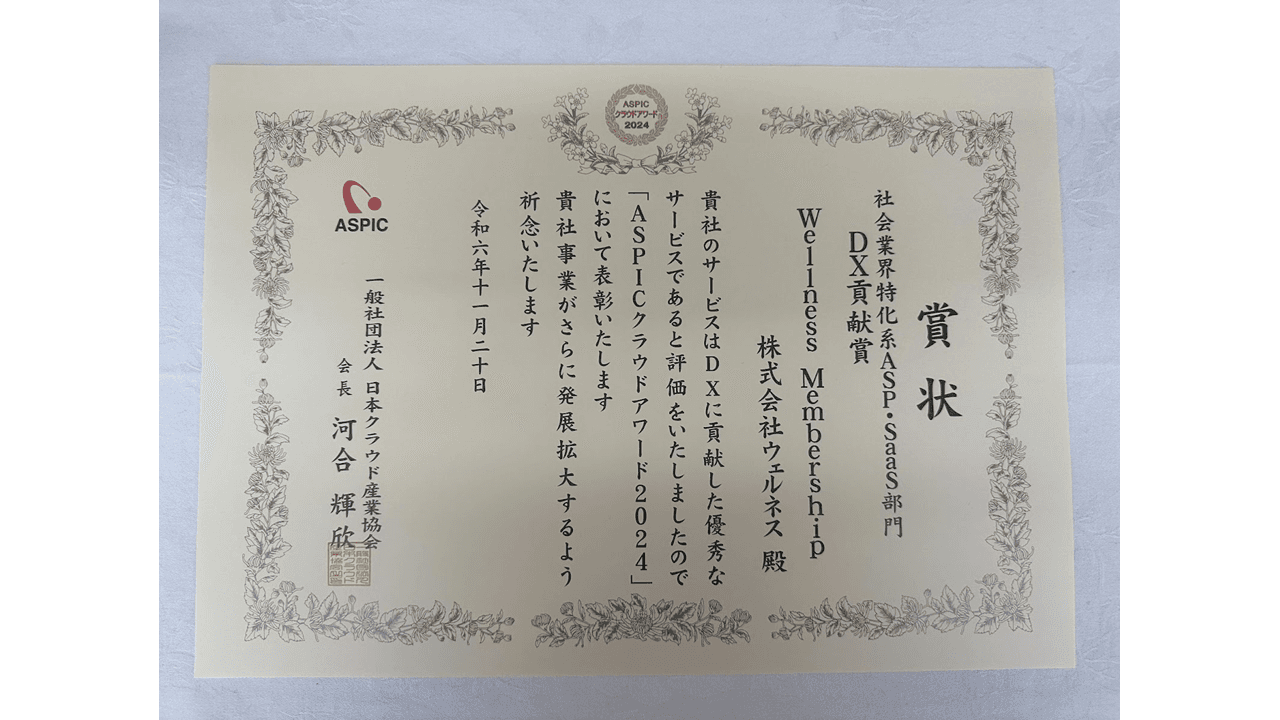 ASPIC
クラウドアワード
2024
賞状
社会業界特化系ASP・SaaS部門
DX貢献賞
Wellness Membership
株式会社ウェルネス 殿
貴社のサービスはDXに貢献した優秀な
サービスであると評価をいたしましたので
「ASPICクラウドアワード2024」
において表彰いたします
貴社事業がさらに発展拡大するよう
祈念いたします
令和六年十一月二十日
ASPIC
一般社団法人 日本クラウド産業協会
会長 河合 輝欣